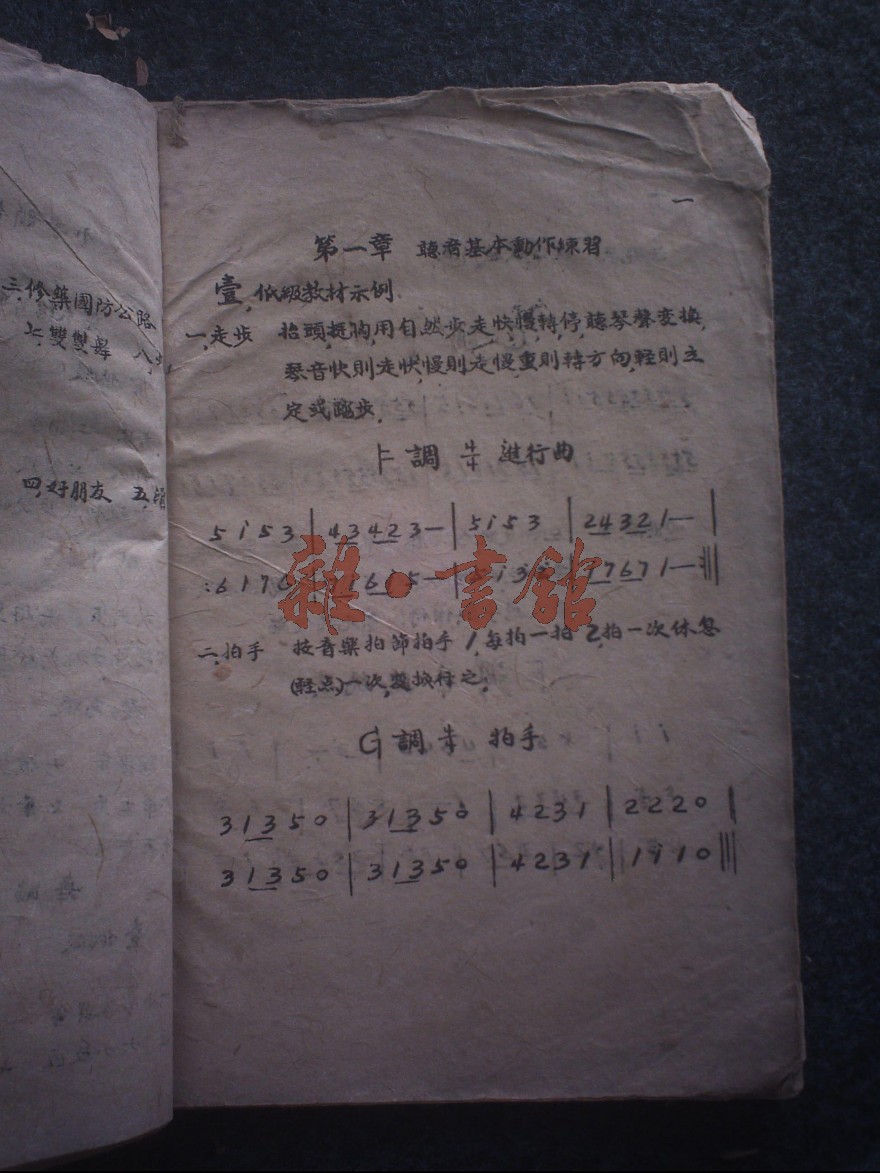 三、修築國防公路
七、雙雙舞 八、
四、好朋友 五、
一
第一章 聽音基本動作練習
壹、低級教材示例
一、走步 抬頭挺胸,用自然步走,快慢轉停,聽琴聲变換,
琴音快則走快,慢則走慢,重則轉方向,輕則立
定或跑步.
F調 4/4 進行曲
5 1̇ 5 3 | 4 3 4 2 3 — | 5 1̇ 5 3 | 2 4 3 2 1 — |
雜·書館
二、拍手 按音樂拍節拍手 1,每拍一拍 2,拍一次休息
(輕点)一次,变換行之,
G調 4/4 拍手
3 1 3 5 0 | 3 1 3 5 0 | 4 2 3 1 | 2 2 2 0 |
3 1 3 5 0 | 3 1 3 5 0 | 4 2 3 1 || 1 1̇ 1 0 |||